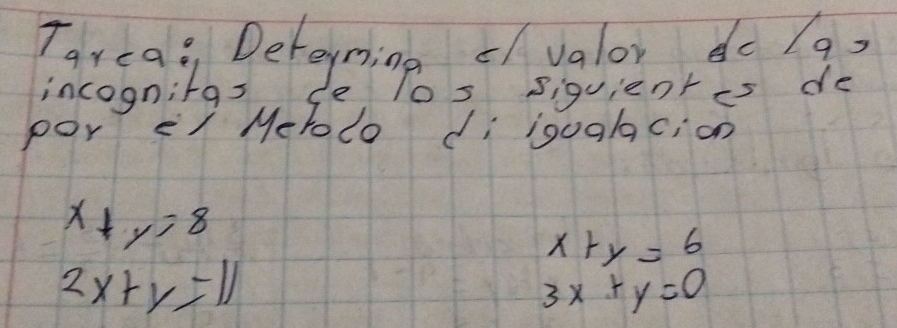 Tarea: Determina el valor de las
incognitas de los siguientes de
por el Metodo di igualacion
x+y=8
2x+y=11
x+y=6
3x+y=0